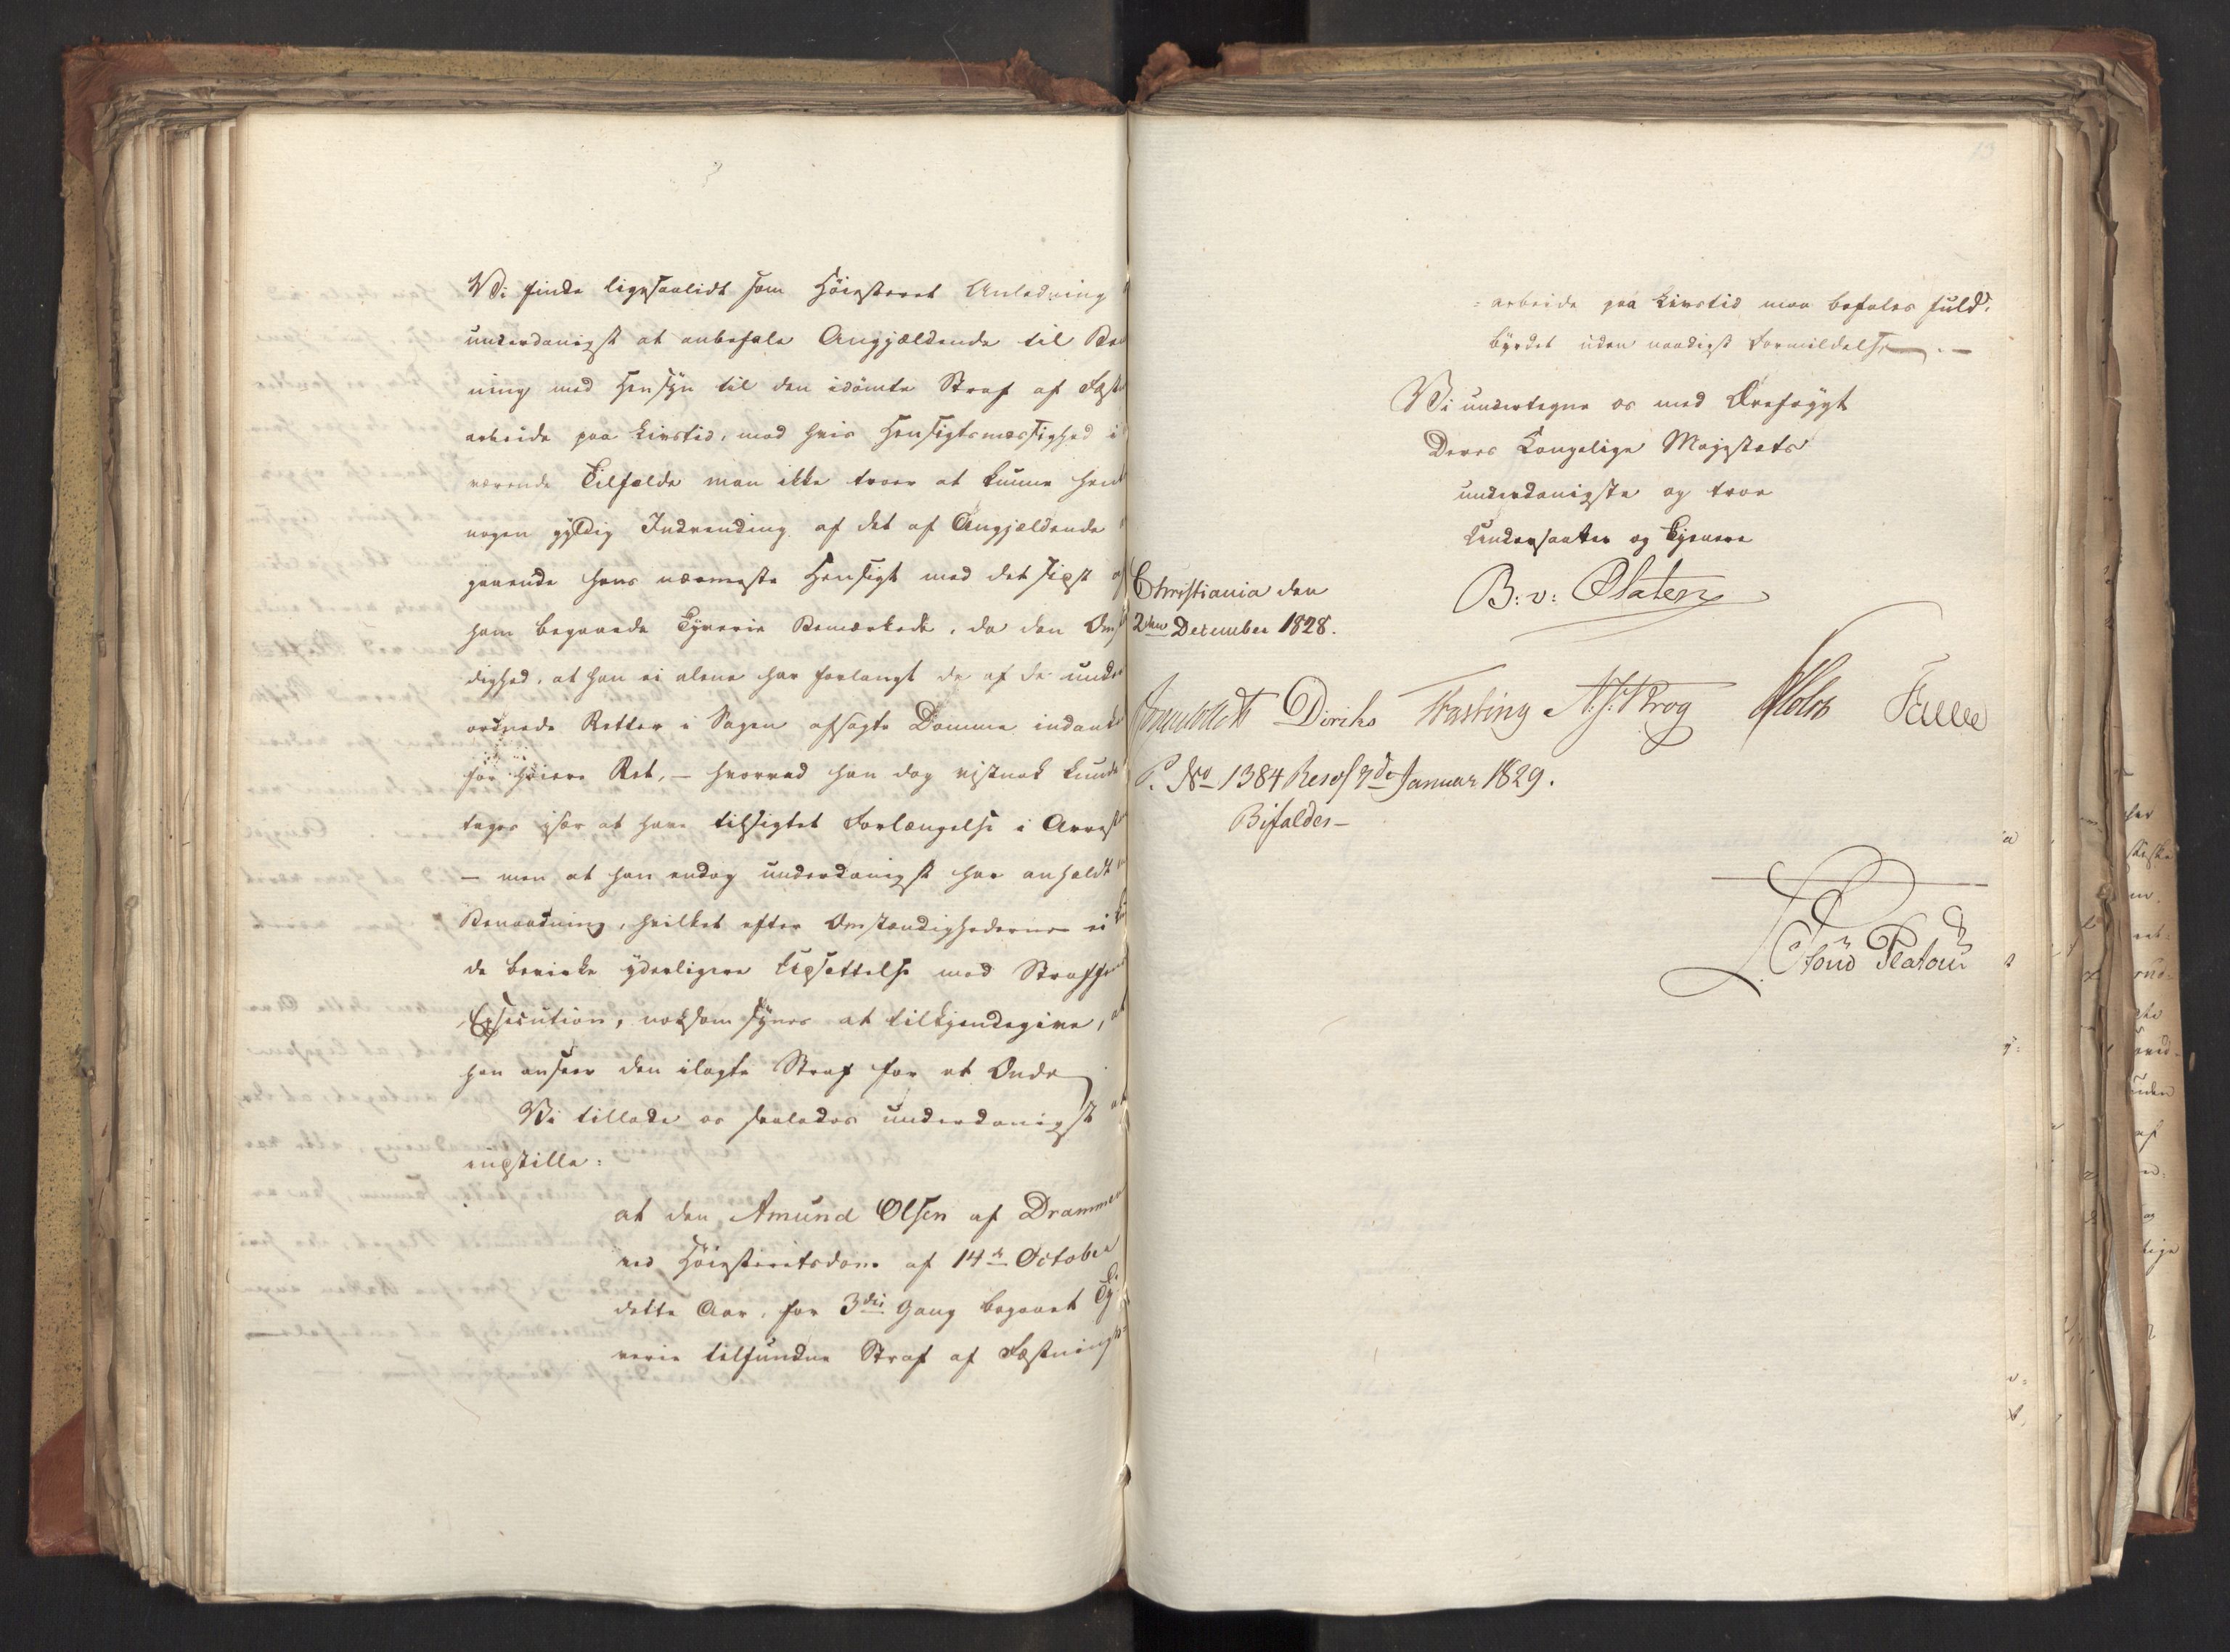 Vi finde ligesaalidt som Høiesteret Anledning
underdanigst at anbefale Angjældende til Be
ning med Hensyn til den idømte Straf af Fæst
arbeide paa Livstid, mod hvis Hensigtsmæssighed i
værende Tilfælde man ikke troer at kunne hent
nogen gyldig Indvending af det af Angjældende
gaaende hans nærmeste Hensigt med det sidst af
ham begaaede Tyverie Bemærkede, da den Oms
dighed, at han ei alene har forlangt de af de under
ordnede Retter i Sagen afsagte Domme indanke
for høiere Ret, – hvorved han dog vistnok kunde
tages især at have tilsigtet Forlængelse i Arrest
– men at han endog underdanigst har anholdt
Benaadning, hvilket efter Omstændighederne ei
de bevirke yderligere Udsættelse med Straffens
Execution, noksom synes at tilkjendegive, at
han anseer den ilagte Straf for et Onde
Vi tillade os saaledes underdanigst at
indstille:
at den Amund Olsen af Drammen
ved Høiesteretsdom af 14de October
dette Aar, for 3die Gang begaaet Ty-
verie tilfundne Straf af Fæstnings-
13
-arbeide paa Livstid maa befales fuld-
byrdet uden naadigst Formildelse. –
Vi undertegne os med Ærefrygt
Deres Kongelige Majestæts
underdanigste og troe
Undersaatter og Tjenere
B: v: Platen
Christiania den
2den December 1828.
Diriks Fasting A. J. Krog Holst
P. No 1384 Resol 7de Januar 1829.
Bifaldes –